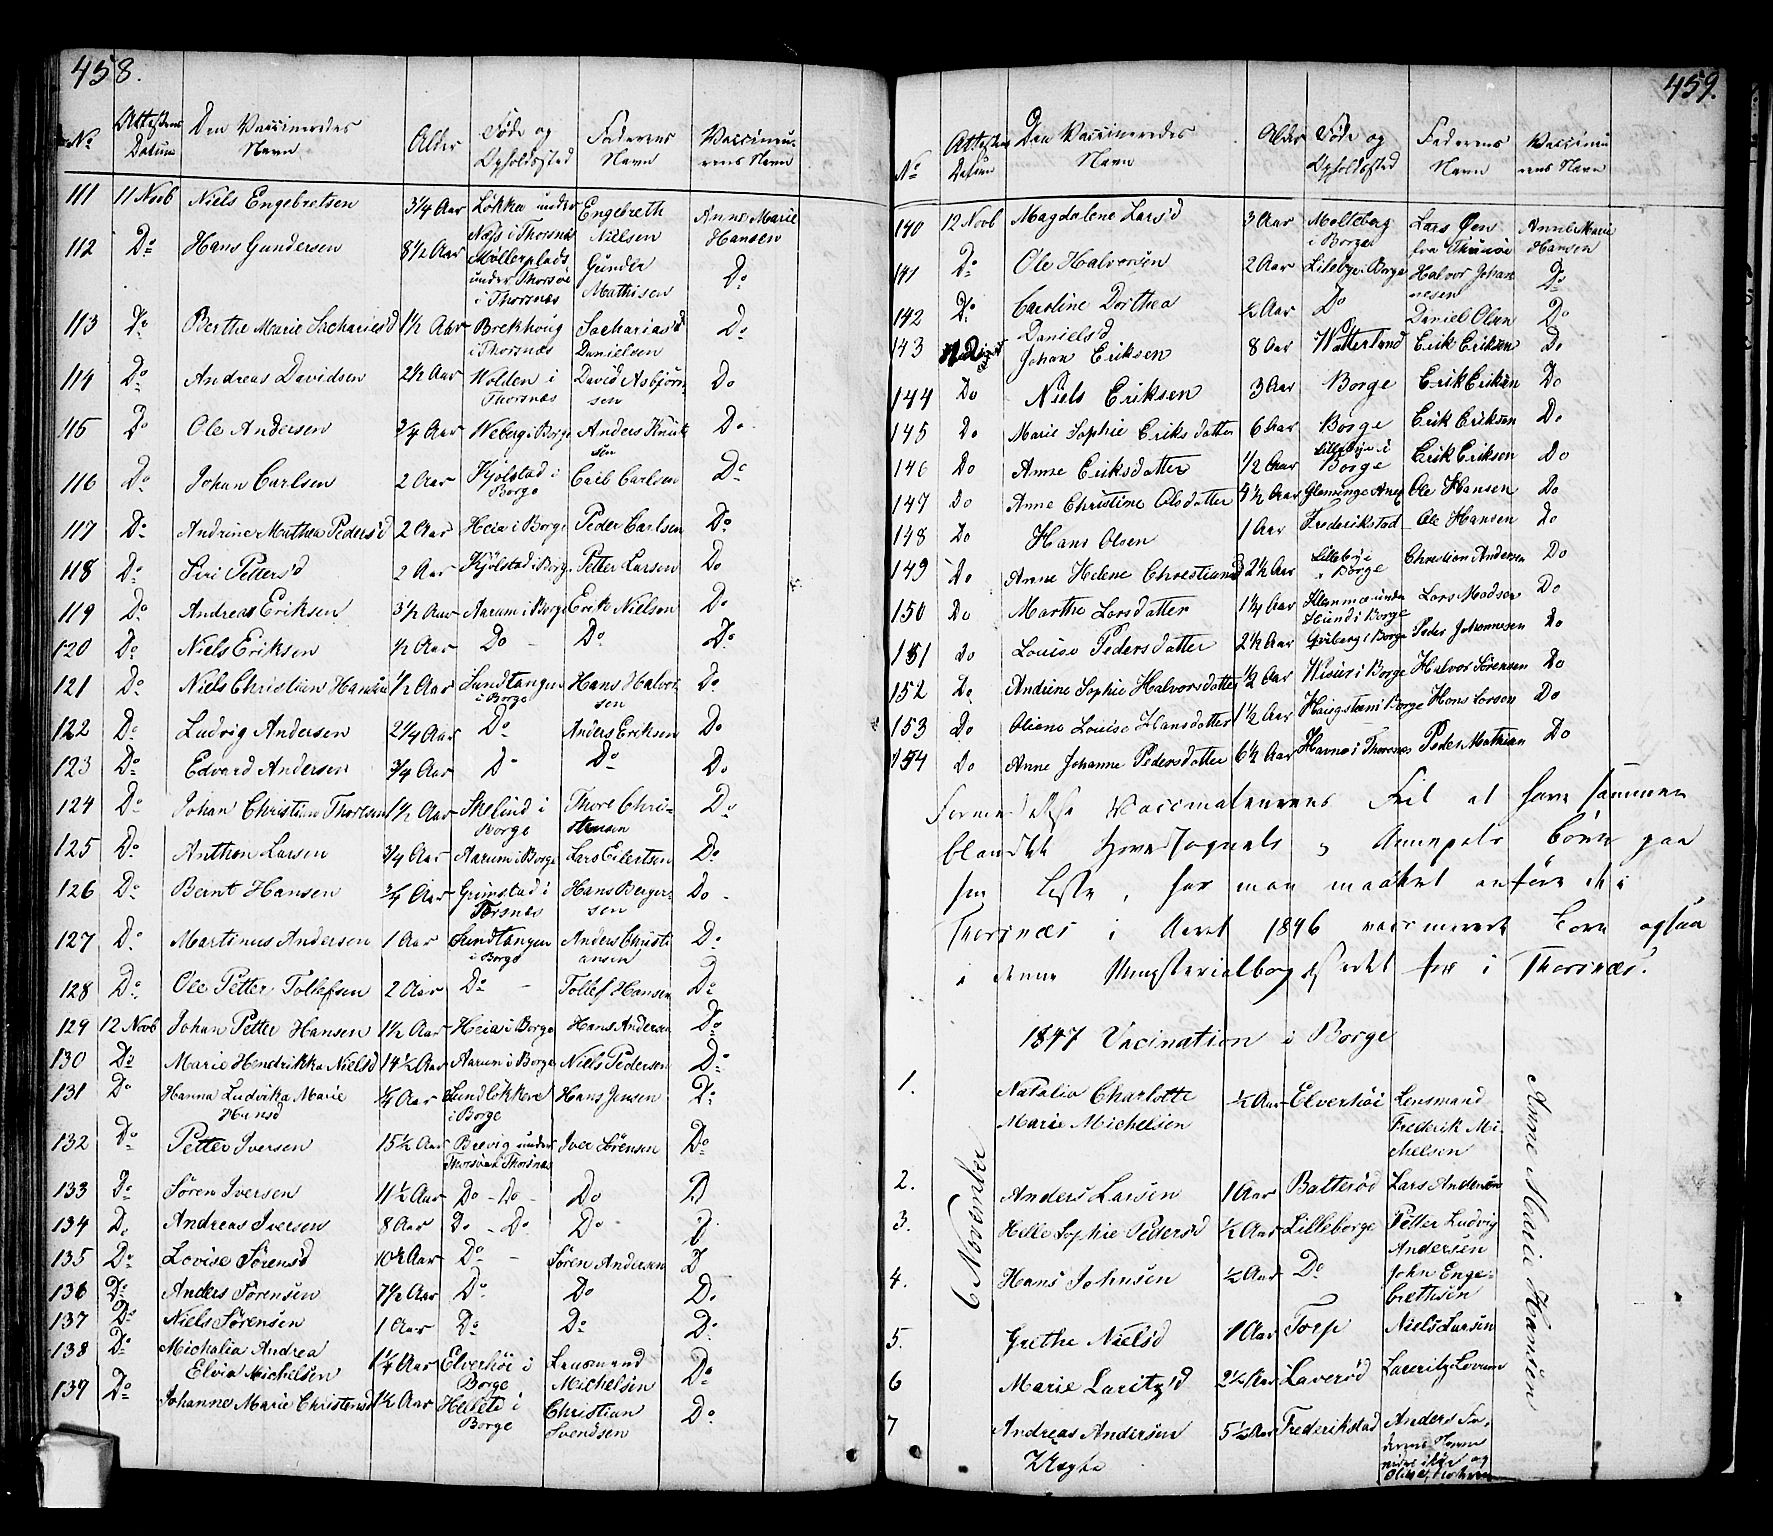 458.
No Attestens Datum Den Vaccineredes Navn Alder Føde og Opholdssted Faderens Navn Vaccineurens Navn
111 11 Novb Niels Engebretsen 3 1/4 Aar Løkka under Næs i Thorsnæs Engebreth Nielsen Anne Marie Hansen
112 Do Hans Gundersen 8 1/2 Aar Møllerplads under Thorsøe i Thorsnæs Gunder Mathisen Do
113 Do Berthe Marie Sachariesd 1 1/2 Aar Brekhoug i Thorsnæs Sacharias Danielsen Do
114 Do Andreas Davidsen 2 1/2 Aar Wolden i Thorsnæs David Asbjørnsen Do
115 Do Ole Andersen 3/4 Aar Weberg i Borge Anders Knutsen Do
116 Do Johan Carlsen 2 Aar Kjølstad i Borge Carl Carlsen Do
117 Do Andrine Mathea Pedersd 2 Aar Heia i Borge Peder Carlsen Do
118 Do Siri Pettersd 2 Aar Kjølstad i Borge Petter Larsen Do
119 Do Andreas Eriksen 3 1/2 Aar Aarum i Borge Erik Nielsen Do
120 Do Niels Eriksen 1/2 Aar Do - Do Do
121 Do Niels Christian Hansen 1/2 Aar Sundtangen i Borge Hans Halvorsen Do
122 Do Ludvig Andersen 2 1/4 Aar Do Anders Eriksen Do
123 Do Edvard Andersen 3/4 Aar Do Do Do
124 Do Johan Christian Thoresen 1 1/2 Aar Skelind i Borge Thore Christensen Do
125 Do Anthon Larsen 3/4 Aar Aarum i Borge Lars Eilertsen Do
126 Do Bernt Hansen 3/4 Aar Grimstad i Torsnæs Hans Bergersen Do -
127 Do Martinus Andersen 1 Aar Sundtangen i Borge Anders Christiansen Do
128 Do Ole Petter Tollefsen 2 Aar Do - Tollef Hansen Do
129 12 Novb Johan Petter Hansen 1 1/2 Aar Heia i Borge Hans Andersen Do
130 Do Marie Hendrikka Nielsd 14 1/2 Aar Aarum i Borge Niels Pedersen Do
131 Do Hanna Ludvika Marie Hansd 1/4 Aar Sundløkken i Borge Hans Jensen Do
132 Do Petter Iversen 15 1/2 Aar Brevig under Thorsøe i Thorsnæs Iver Sørensen Do
133 Do Søren Iversen 11 1/2 Aar Do - Do - Do D
134 Do Andreas Iversen 8 Aar Do - Do Do D
135 Do Lovise Sørensd 10 1/2 Aar Do - Søren Andersen D
136 Do Anders Sørensen 7 1/2 Aar Do Do Do
137 Do Niels Sørensen 1 Aar Do Do Do
138 Do Michalia Andrea Elvia Michelsen 1 1/4 Aar Elverhøi i Borge Lensmand Michelsen Do
139 Do Johanne Marie Christensd 1 1/2 Aar i Borge Christian Svendsen Do
459.
No Attestens Datum Den Vaccineredes Navn Alder Føde og Opholdssted Faderens Navn Vaccineurens Navn
140 12 Novb Magdalene Larsd 3 Aar Molleberg i Borge Lars Øen fra Anne Marie Hansen
141 Do Ole Halvorsen 2 Aar Lilebye i Borge Halvor Johannesen Do
142 Do Caroline Dorthea Danielsd 1/2 Aar Do Daniel Olsen Do
143 Johan Eriksen 8 Aar Watterland Erik Eriksen Do
144 Do Niels Eriksen 3 Aar Borge Erik Eriksen Do
145 Do Marie Sophie Eriksdatter 6 Aar Borge Erik Eriksen Do
146 Do Anne Eriksdatter 1/2 Aar Lillebye i Borge Erik Eriksen Do
147 Do Anne Christine Olsdatter 4 1/2 Aar Glemminge Anex Ole Hansen Do
148 Do Hans Olsen 1 Aar Frederikstad Ole Hansen Do
149 Do Anne Helene Christiansd 2 1/2 Aar Lillebye i Borge Christian Andersen Do
150 Do Marthe Larsdatter 1 1/4 Aar under Hund i Borge Lars Madsen Do
151 Do Louise Pedersdatter 2 1/2 Aar i Borge Peder Johannesen Do
152 Do Andrine Sophie Halvorsdatter 1/2 Aar i Borge Halvor Sørensen Do
153 Do Oliane Louise Hansdatter 1 1/2 Aar i Borge Hans Larsen Do
154 Do Anne Johanne Pedersdatter 6 1/2 Aar Havnen i Thorsnæs Peder Mathisen Do
Vaccinateurens Feil at have sammen
blandet Hovedsognets og Annexets Børn paa
sin Liste, har man maattet anføre de i
Thorsnæs i Aaret 1846 vaccinerede Børn ogsaa
i denne Ministerialbog istedet for i Thorsnæs.
1847 Vacination i Borge
6 November
Anne Marie Hansen
1. Natalia Charlotte Marie Michelsen 1/2 Aar Elverhøi Lensmand Frederik Michelsen
2. Anders Larsen 1 Aar Batterød Lars Andersen
3. Helle Sophie Pedersd 1/2 Aar Lilleborge Petter Ludvig Andersen
4. Hans Johnsen 1/2 Aar Do John Engebrethsen
5. Grethe Nielsd 1 Aar Torp Niels Larsen
6 Marie Laritzd 2 1/2 Aar Laverød Lauritz
7 Andreas Andersen 5 1/2 Aar Frederikstad Anders